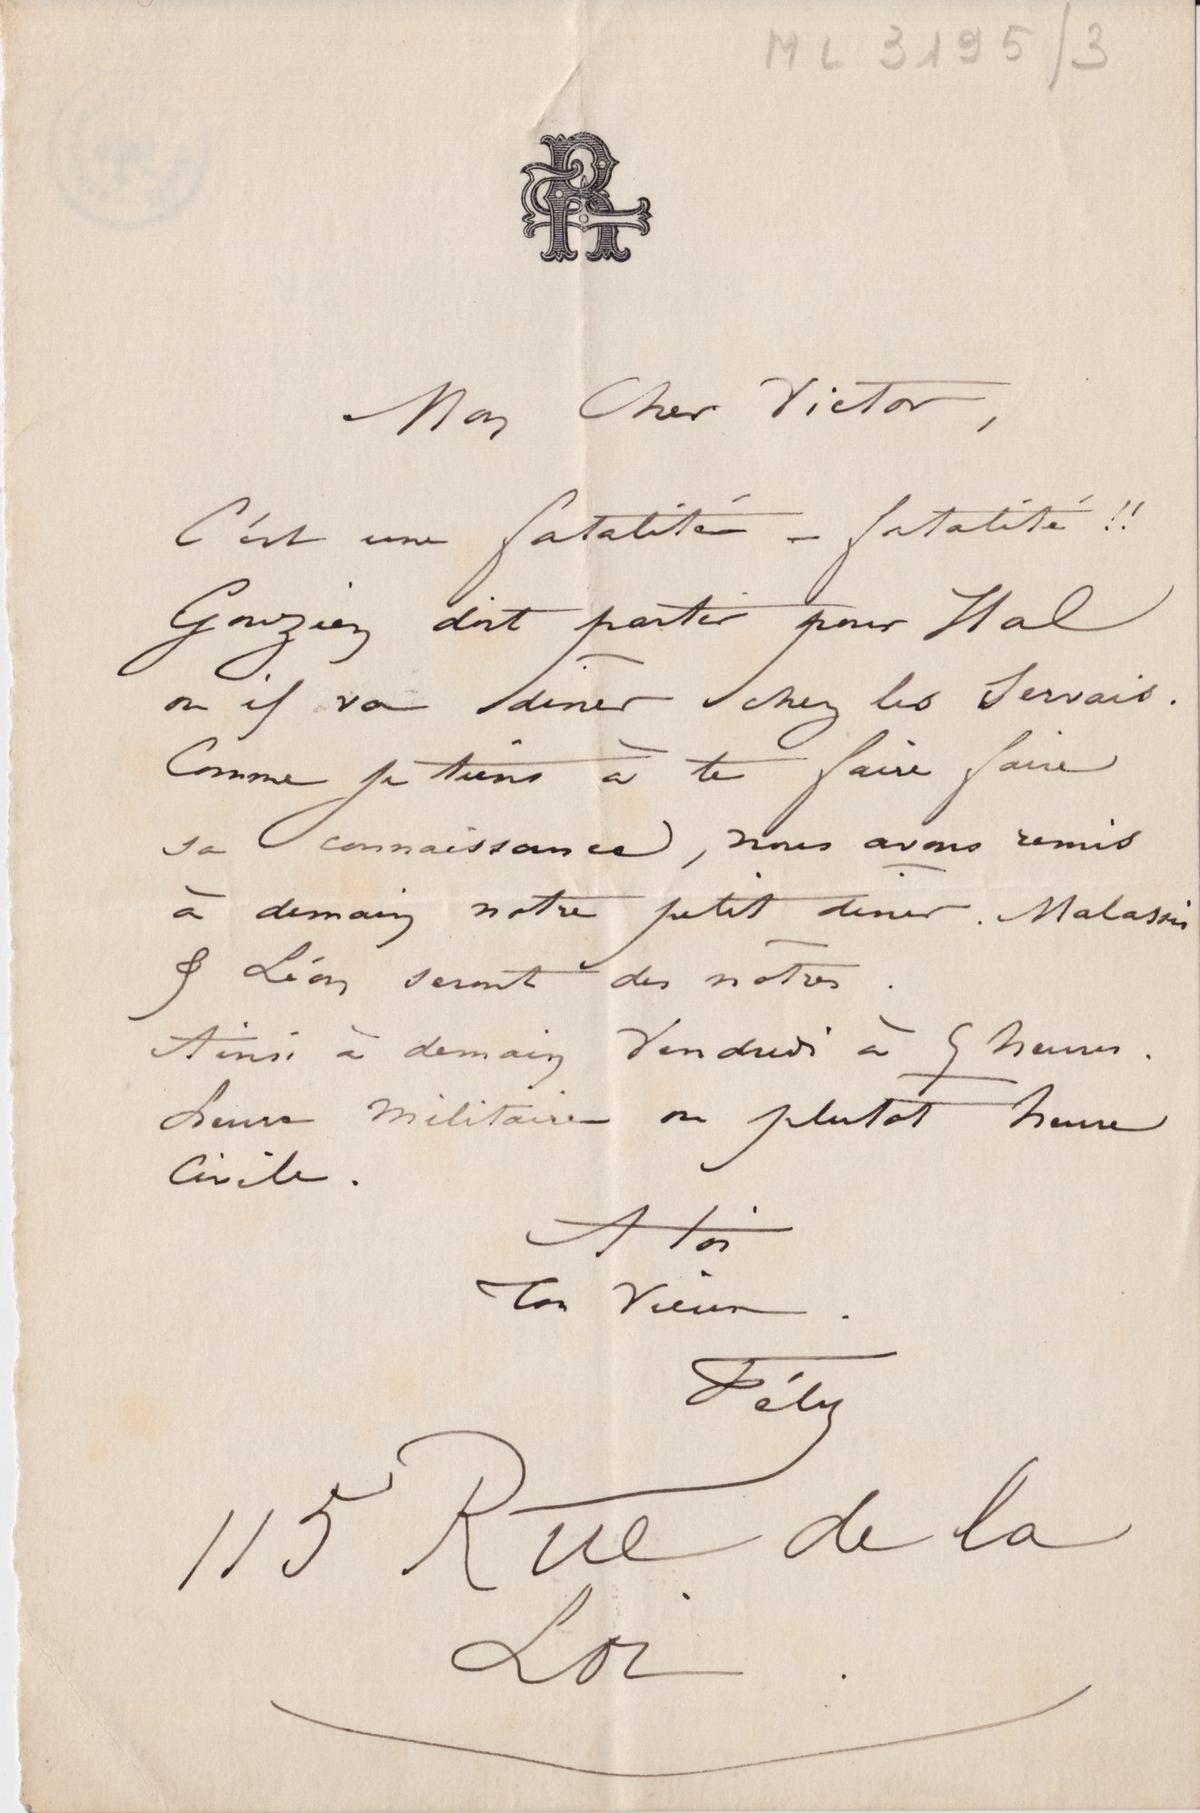 ML 3195/3
Mon Cher Victor,
C'est une fatalité – fatalité !!
Gouzien doit partir pour Hal
ou il va dîner chez les Servais.
Comme je tiens à te faire faire
sa connaissance, nous avons remis
à demain notre petit dîner. Malassis
& Léon seront des nôtres.
Ainsi à demain Vendredi à 5 heures.
heure militaire ou plutot heure
Civile.
A toi
Ton Vieux.
Fély
115 Rue de la
Loi.